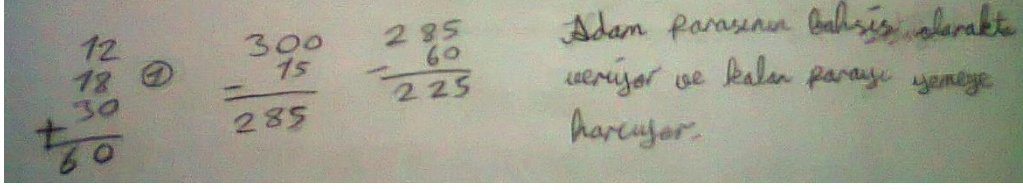 12
18
30
+
60
①
300
- 15
285
285
- 60
225
Adam parasının bahşiş olarakta
veriyor ve kalan parayı yemeye
harcıyor.